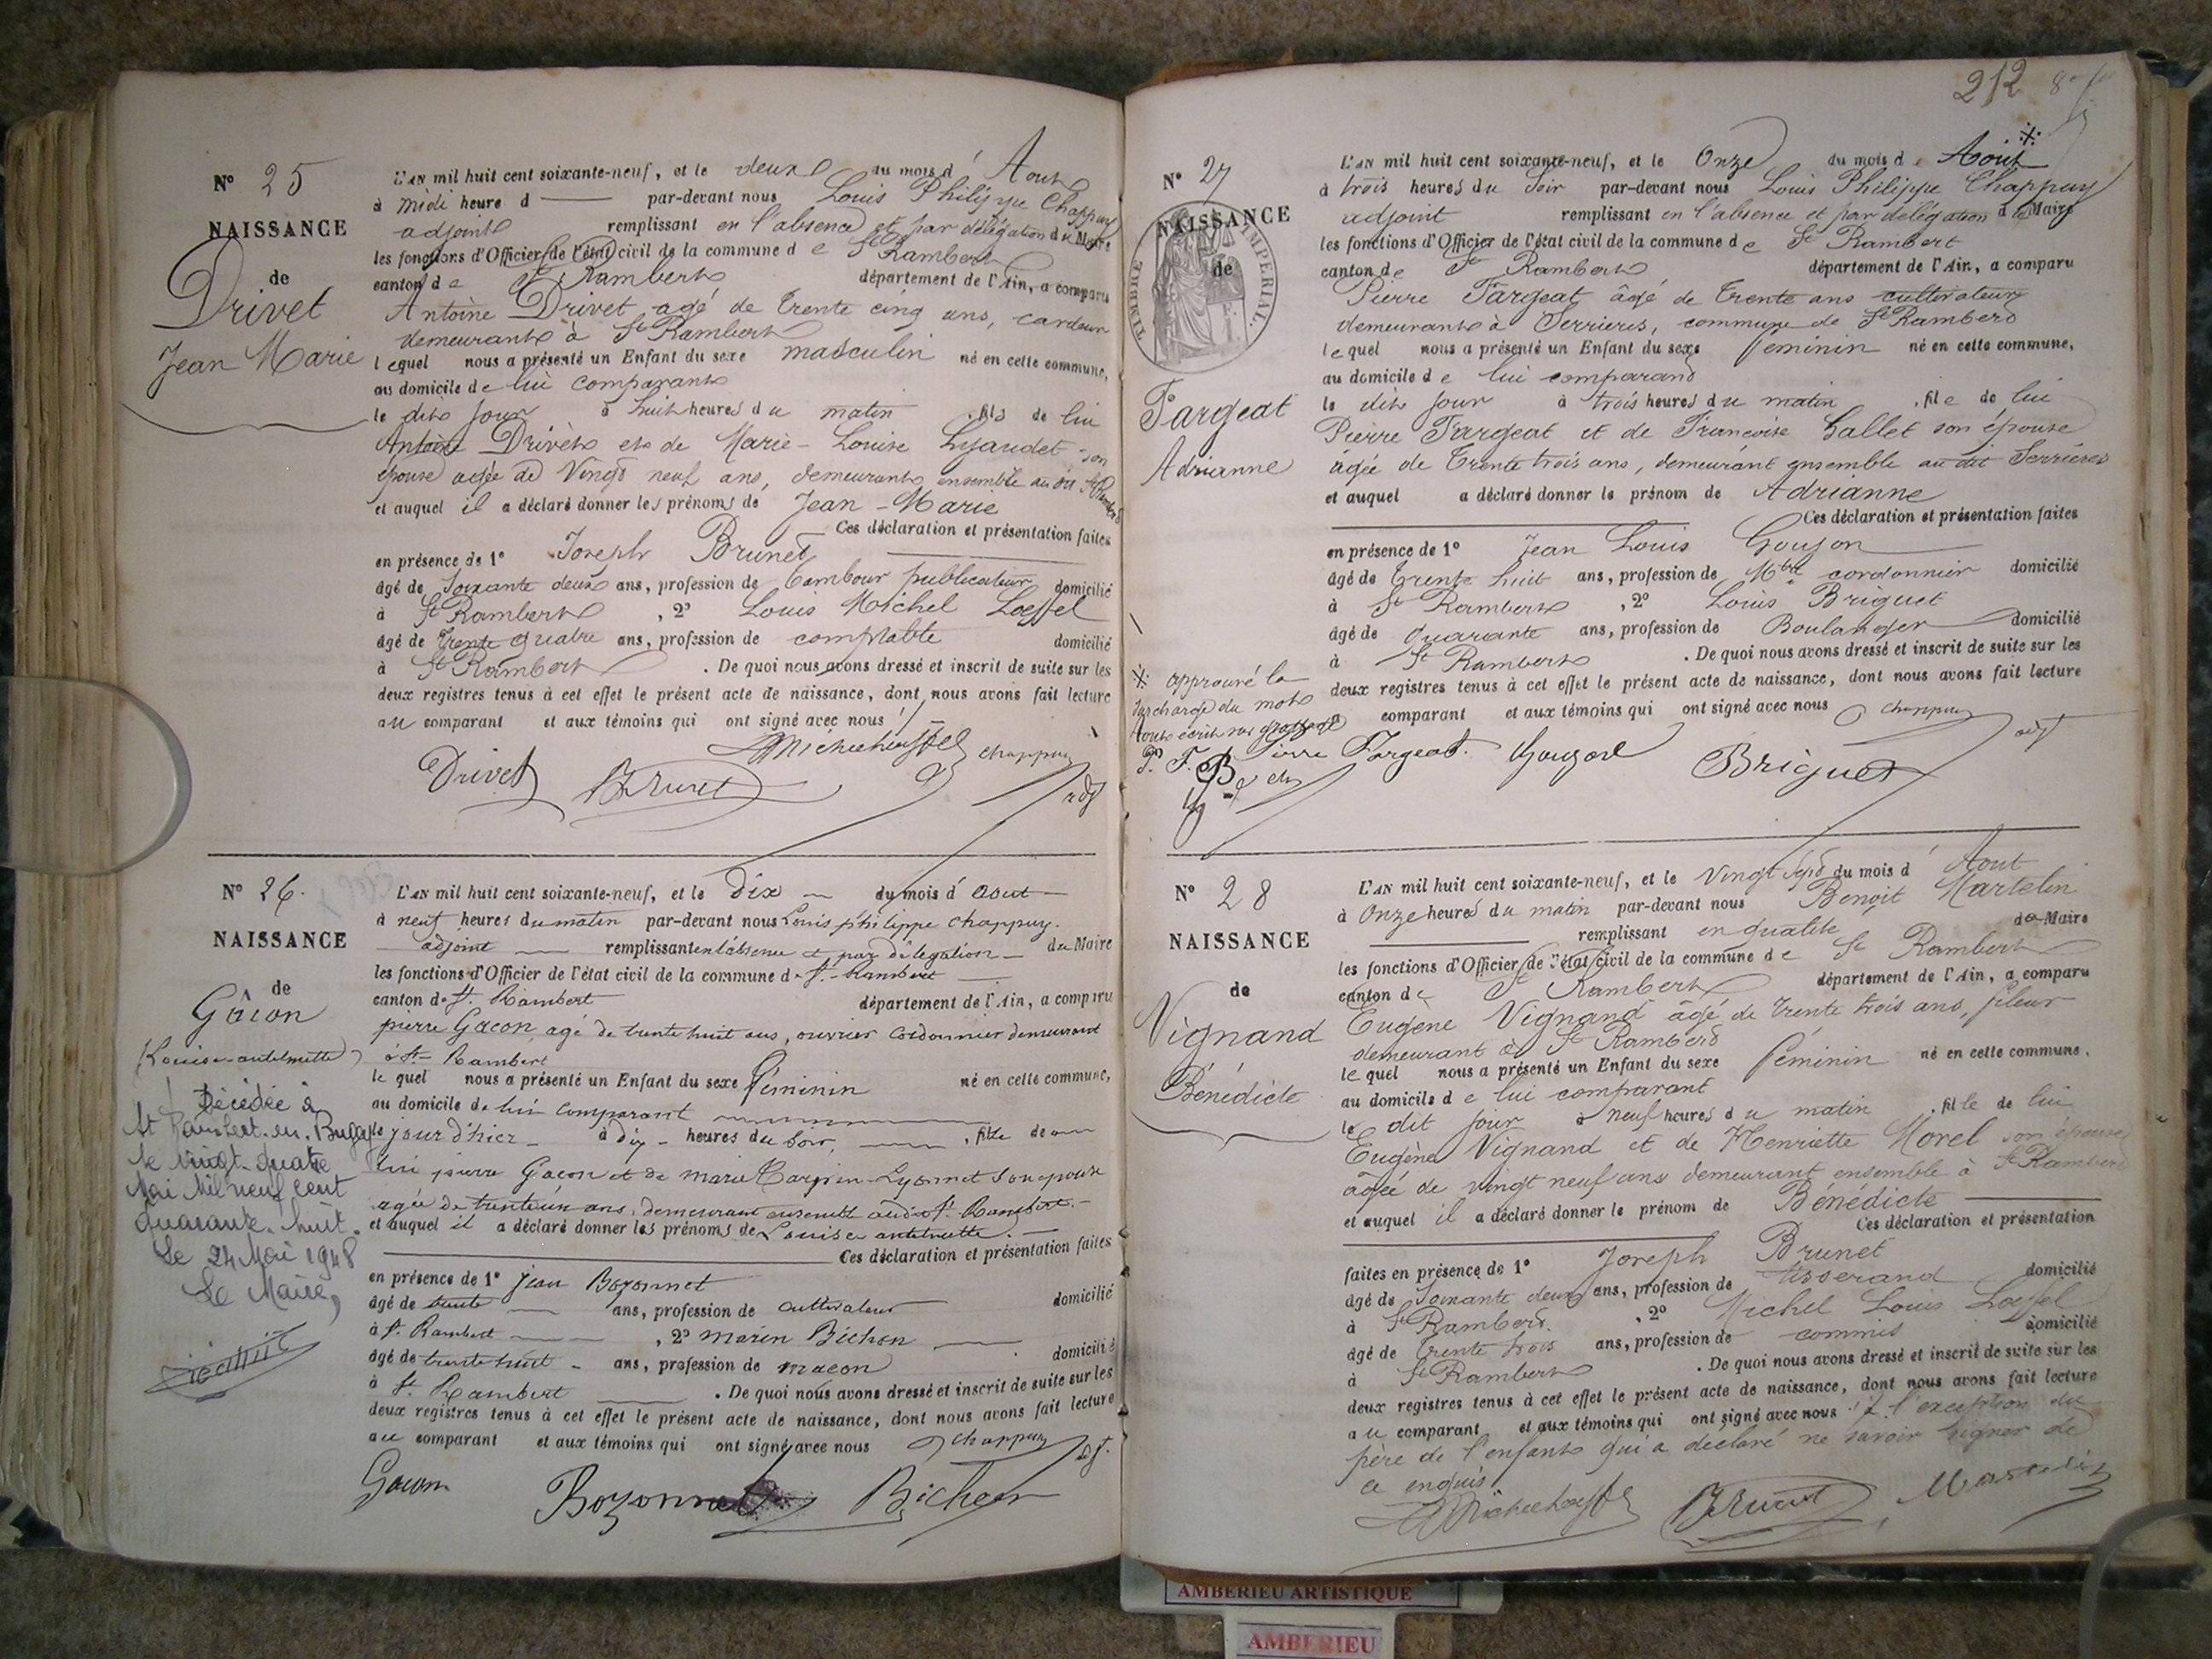 N° 25
NAISSANCE
de
Drivet
Jean Marie
L'AN mil huit cent soixante-neuf, et le deux du mois d' Aout
à midi heure d par-devant nous Louis Philippe Chappuy
adjoint remplissant en l'absence et par délégation du Maire
les fonctions d'Officier de l'état civil de la commune de St Rambert
canton de St Rambert département de l'Ain, a comparu
Antoine Drivet agé de trente cinq ans, cardeur
demeurant à St Rambert
lequel nous a présenté un Enfant du sexe masculin né en cette commune,
au domicile de lui comparant
le dit jour à huit heures du matin, fils de lui
Antoine Drivet et de Marie-Louise Lyaudet son
épouse agée de Vingt neuf ans, demeurant ensemble au dit St Rambert
et auquel il a déclaré donner les prénoms de Jean-Marie
Ces déclaration et présentation faites
en présence de 1° Joseph Brunet
âgé de soixante deux ans, profession de tambour publicateur domicilié
à St Rambert, 2° Louis Michel Loeffel
âgé de trente quatre ans, profession de comptable domicilié
à St Rambert. De quoi nous avons dressé et inscrit de suite sur les
deux registres tenus à cet effet le présent acte de naissance, dont nous avons fait lecture
au comparant et aux témoins qui ont signé avec nous
Drivet Brunet chappuy adjt
N° 26.
NAISSANCE
de
Gâcon
(Louise-antelmette)
Décédée à
St Rambert-en-Bugey
le vingt-quatre
Mai Mil neuf cent
quarante-huit.
Le 24 Mai 1948
Le Maire,
L'AN mil huit cent soixante-neuf, et le dix du mois d' aout
à neuf heures du matin par-devant nous Louis philippe chappuy.
adjoint remplissant en l'absence et par délégation du Maire
les fonctions d'Officier de l'état civil de la commune de St. Rambert
canton de St. Rambert département de l'Ain, a comparu
pierre Gacon, agé de trente huit ans, ouvrier cordonnier demeurant
à St Rambert
lequel nous a présenté un Enfant du sexe féminin né en cette commune,
au domicile de lui comparant
le jour d'hier à dix heures du soir, fille de
lui pierre Gacon et de marie Lyonnet son épouse
agée de trente un ans, demeurant ensemble audit St. Rambert.
et auquel il a déclaré donner les prénoms de Louise antelmette.
Ces déclaration et présentation faites
en présence de 1° jean Bozonnet
âgé de trente ans, profession de cultivateur domicilié
à St. Rambert, 2° marin Bichon
âgé de trente huit ans, profession de maçon domicilié
à St. Rambert. De quoi nous avons dressé et inscrit de suite sur les
deux registres tenus à cet effet le présent acte de naissance, dont nous avons fait lecture
au comparant et aux témoins qui ont signé avec nous chappuy adjt.
Gacon Bozonnet Bichon
212
N° 27
NAISSANCE
de
TIMBRE IMPERIAL.
Fargeat
Adrianne
※ approuvé la
surcharge du mot
Août écrit sur grattage
P. F.
L'AN mil huit cent soixante-neuf, et le Onze du mois de Août ※
à trois heures du soir par-devant nous Louis Philippe Chappuy
adjoint remplissant en l'absence et par délégation du Maire
les fonctions d'Officier de l'état civil de la commune de St Rambert
canton de St Rambert département de l'Ain, a comparu
Pierre Fargeat, âgé de trente ans cultivateur
demeurant à Serrieres, commune de St Rambert
lequel nous a présenté un Enfant du sexe féminin né en cette commune,
au domicile de lui comparant
le dit jour à trois heures du matin, file de lui
Pierre Fargeat et de Francoise Gallet son épouse
âgée de trente trois ans, demeurant ensemble au dit Serrières
et auquel a déclaré donner le prénom de Adrianne
Ces déclaration et présentation faites
en présence de 1° Jean Louis Goujon
âgé de trente huit ans, profession de Md cordonnier domicilié
à St Rambert, 2° Louis Briquet
âgé de quarante ans, profession de Boulanger domicilié
à St Rambert. De quoi nous avons dressé et inscrit de suite sur les
deux registres tenus à cet effet le présent acte de naissance, dont nous avons fait lecture
au comparant et aux témoins qui ont signé avec nous chappuy
Pierre Fargeat. Goujon Briquet adjt
N° 28
NAISSANCE
de
Vignand
Bénédicte
L'AN mil huit cent soixante-neuf, et le Vingt sept du mois d' Aout
à Onze heures du matin par-devant nous Benoit Martelin
remplissant en qualité de Maire
les fonctions d'Officier de l'état civil de la commune de St Rambert
canton de St Rambert département de l'Ain, a comparu
Eugène Vignand âgé de trente trois ans, fileur
demeurant à St Rambert
lequel nous a présenté un Enfant du sexe féminin né en cette commune,
au domicile de lui comparant
le dit jour à neuf heures du matin, fille de lui
Eugène Vignand et de Henriette Morel son épouse
âgée de vingt neuf ans demeurant ensemble à St Rambert
et auquel il a déclaré donner le prénom de Bénédicte
Ces déclaration et présentation
faites en présence de 1° Joseph Brunet
âgé de soixante deux ans, profession de tisserand domicilié
à St Rambert, 2° Michel Louis Loeffel
âgé de trente trois ans, profession de commis domicilié
à St Rambert. De quoi nous avons dressé et inscrit de suite sur les
deux registres tenus à cet effet le présent acte de naissance, dont nous avons fait lecture
au comparant et aux témoins qui ont signé avec nous à l'exception du
père de l'enfant qui a déclaré ne savoir signer de
ce enquis
Brunet Martelin
AMBERIEU ARTISTIQUE
AMBERIEU